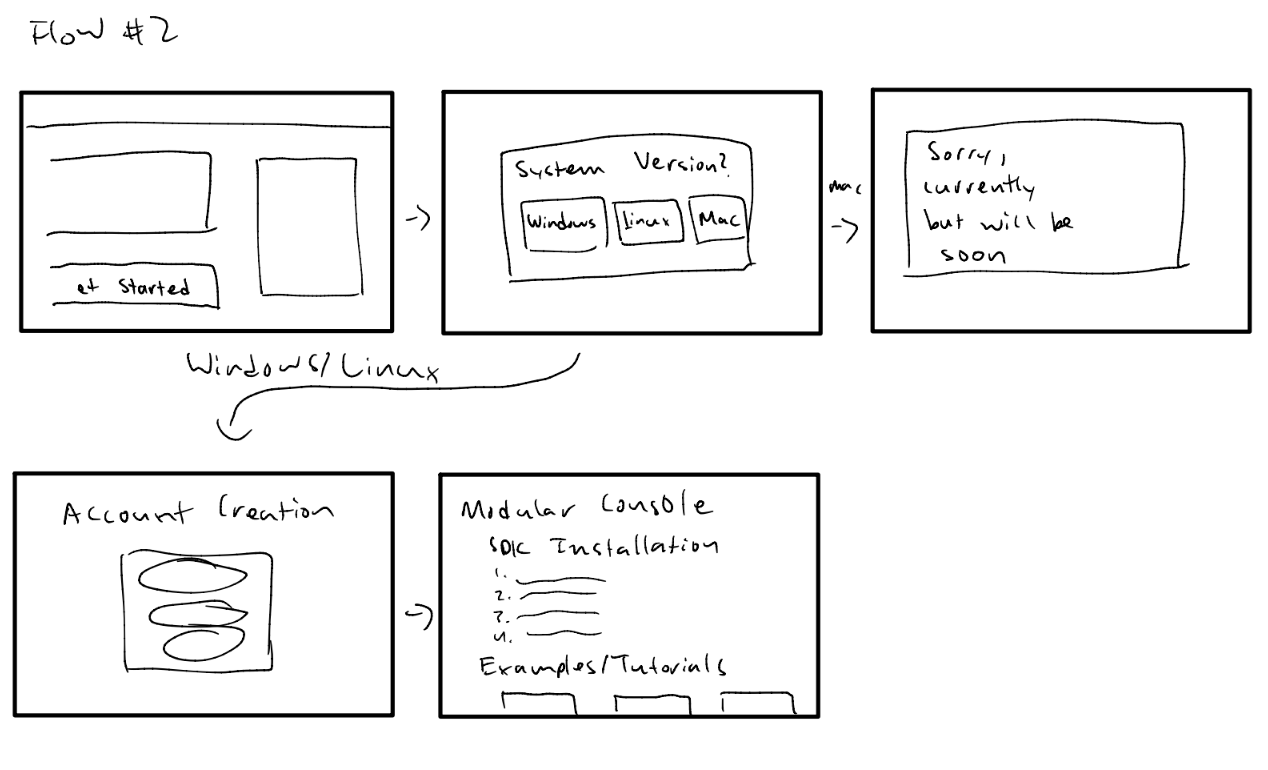 Flow #2
et Started
System Version?
Windows Linux Mac
mac
Sorry,
currently
but will be
soon
Windows/Linux
Account Creation
Modular Console
SDK Installation
1.
2.
3.
4.
Examples/Tutorials